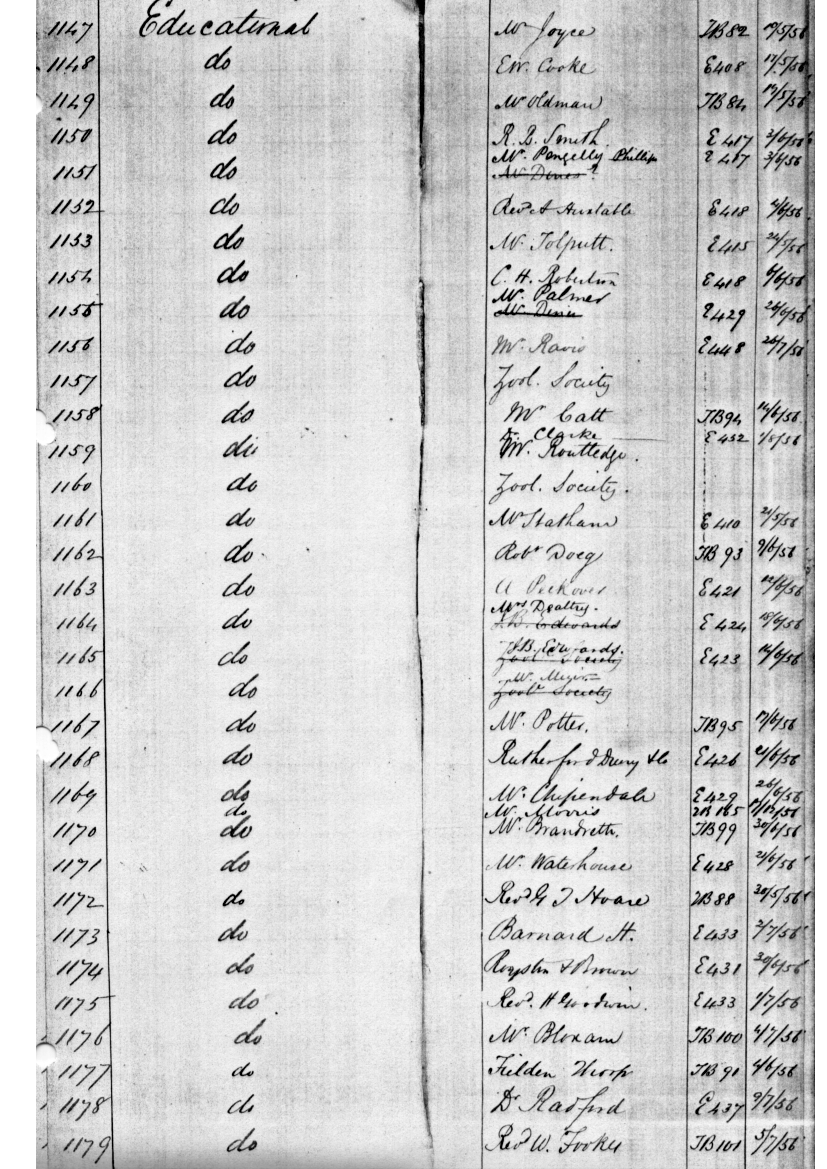 1147 Educational Mr Joyce TB 82 19/5/56
1148 do EW. Cooke E408 17/5/56
1149 do Mr Oldman TB 84 19/5/56
1150 do R. B. Smith. E417 2/6/56
1151 do Mr. Pengelly Phillips E417 3/6/56
Mr Dines?
1152 do Revd A Huxtable E418 4/6/56
1153 do Mr. Tolputt. E415 24/5/56
1154 do C. H. Robertson E418 6/6/56
Mr. Palmer
1155 do E429 26/6/56
1156 do Mr. E448 26/7/56
1157 do Zool. Society
1158 do Mr Catt TB94 14/6/56
Clarke E452 1/8/56
1159 do Mr. Routledge.
1160 do Zool. Society.
1161 do Mr Statham E410 21/5/56
1162 do Robt Doeg TB 93 9/6/56
1163 do A Peckover E421 12/6/56
Mrs Dealtry.
1164 do J.B. Edwards E424 18/6/56
1165 do J.B. Edwards. E423 14/6/56
Zool Society
Mr.
1166 do Zool Society
1167 do Mr. Potter. TB95 17/6/56
1168 do Rutherford Drury & Co E426 21/6/56
1169 do Mr. Chipendale E429 26/6/56
do Mr. Morris TB 165
1170 do Mr. Brandreth. TB99 30/6/56
1171 do Mr. Waterhouse E428 24/6/56
1172 do Revd G T Hoare TB 88 30/5/56
1173 do Barnard H. E433 2/7/56
1174 do Royston & Brown E431 30/6/56
1175 do Revd. H Goodwin. E433 1/7/56
1176 do Mr. Bloxam TB 100 4/7/56
1177 do Fielden Thorp TB 91 4/6/56
1178 do Dr Radford E437 9/7/56
1179 do Revd W. Fookes TB 101 5/7/56